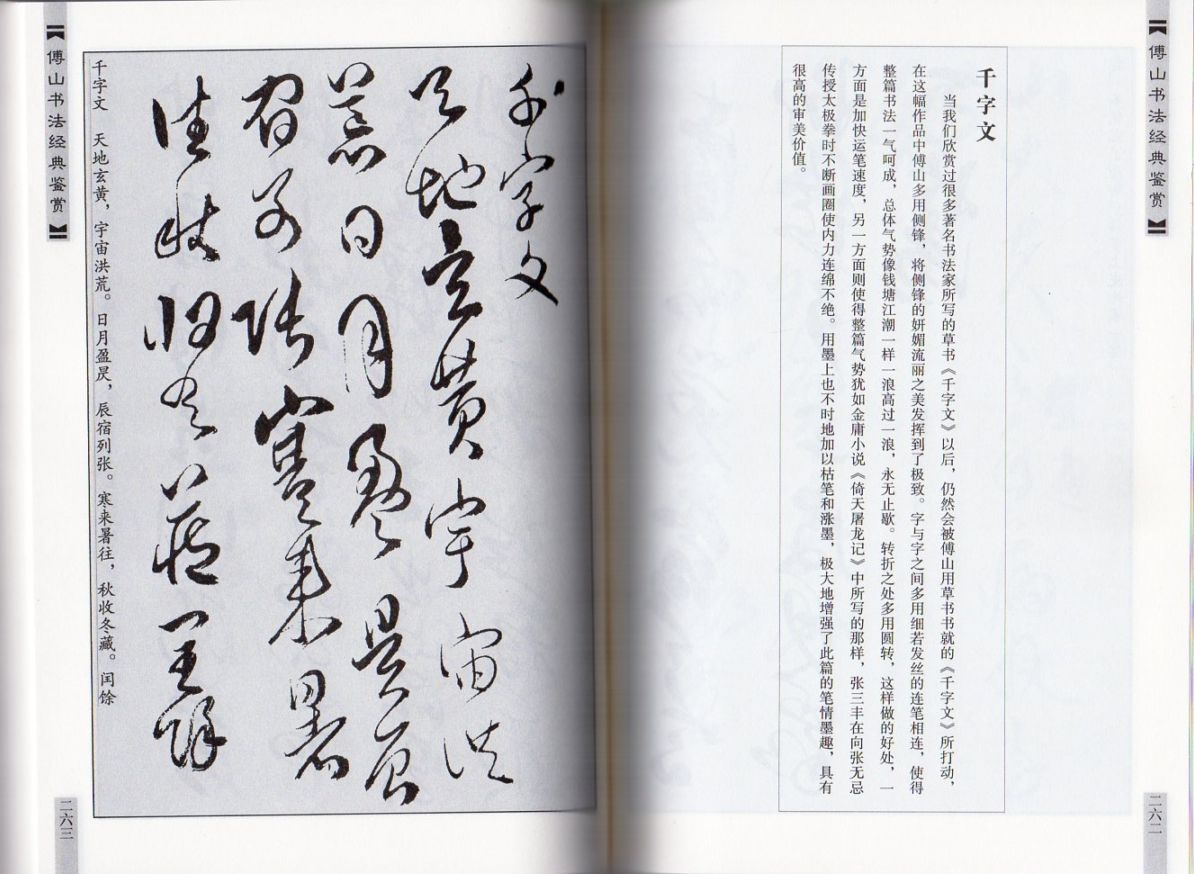 傅山书法经典鉴赏
千字文
当我们欣赏过很多著名书法家所写的草书《千字文》以后，仍然会被傅山用草书书就的《千字文》所打动，
在这幅作品中傅山多用侧锋，将侧锋的妍媚流丽之美发挥到了极致。字与字之间多用细若发丝的连笔相连，使得
整篇书法一气呵成，总体气势像钱塘江潮一样一浪高过一浪，永无止歇。转折之处多用圆转，这样做的好处，一
方面是加快运笔速度，另一方面则使得整篇气势犹如金庸小说《倚天屠龙记》中所写的那样，张三丰在向张无忌
传授太极拳时不断画圈使内力连绵不绝。用墨上也不时地加以枯笔和涨墨，极大地增强了此篇的笔情墨趣，具有
很高的审美价值。
二六二
千字文
天地玄黄宇宙洪
荒日月盈昃辰
宿列张寒来暑
往秋收冬藏闰馀
千字文 天地玄黄，宇宙洪荒。日月盈昃，辰宿列张。寒来暑往，秋收冬藏。闰馀
傅山书法经典鉴赏
二六三